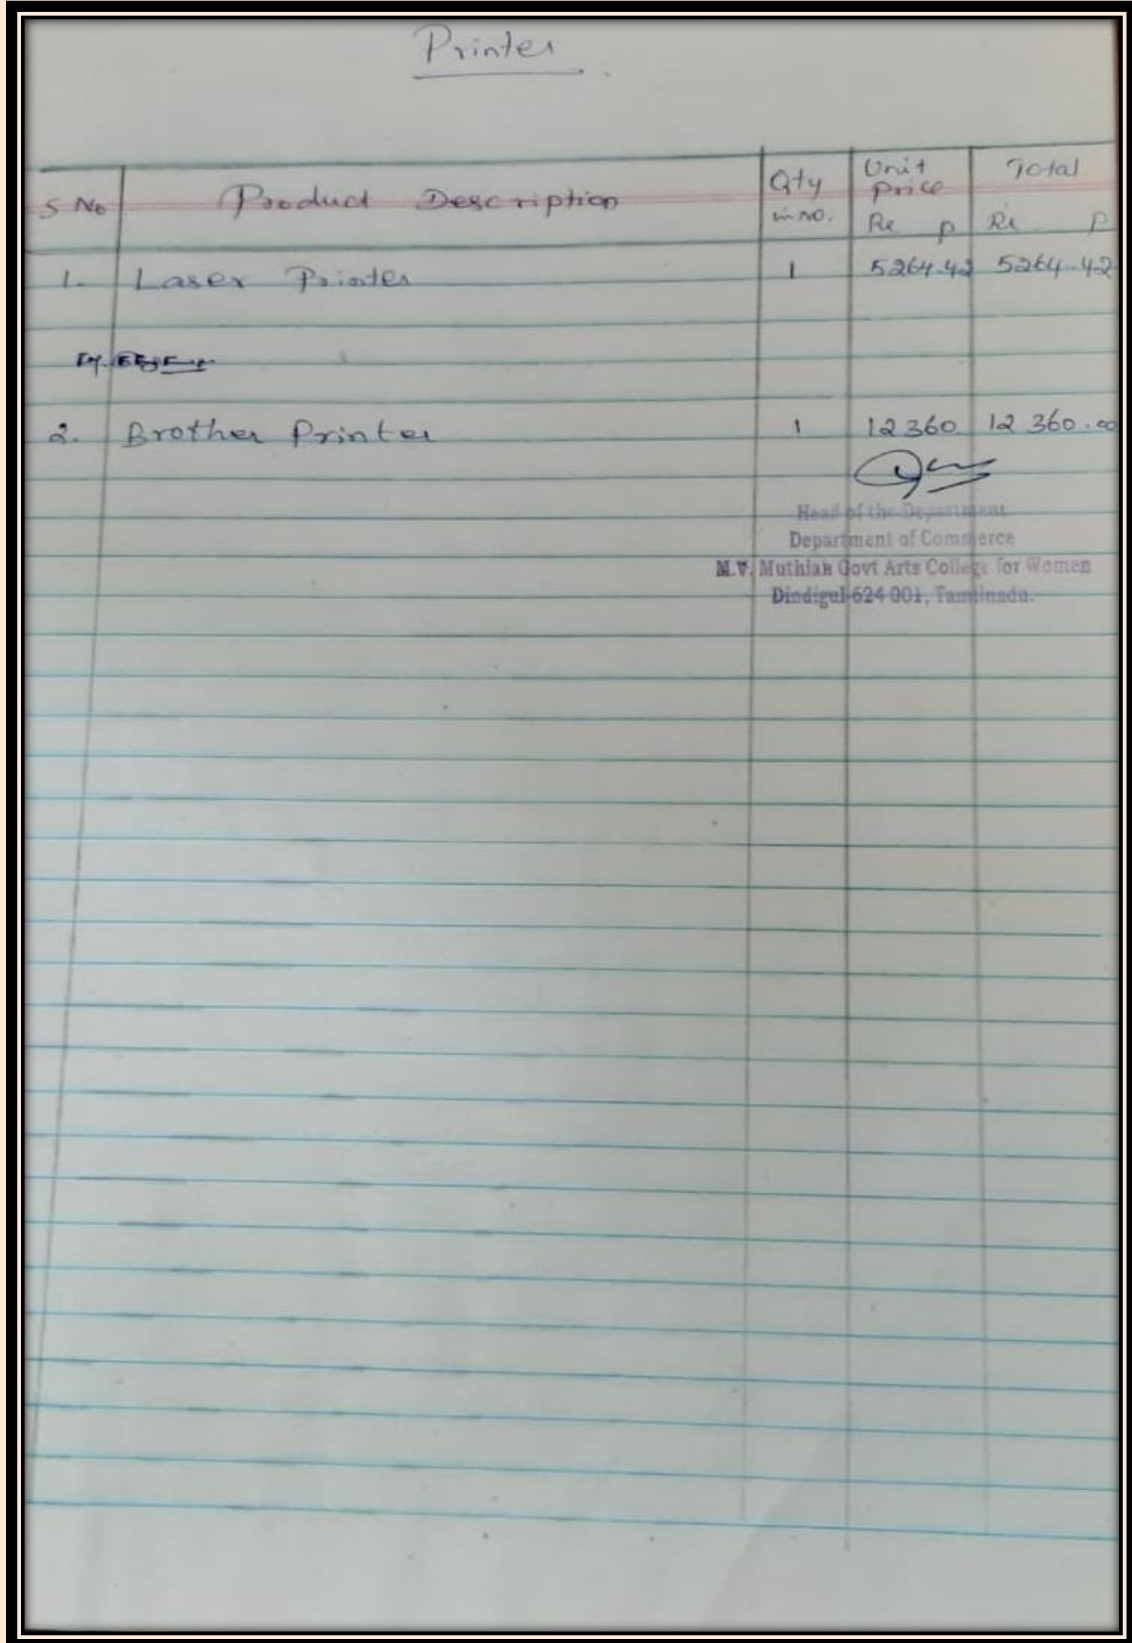 Printer
S No Product Description Qty in no. Unit Price Total
Rs P Rs P
1. Laser Printer 1 5264.42 5264.42
2. Brother Printer 1 12360 12360.00
Head of the Department
Department of Commerce
M.V. Muthiah Govt Arts College for Women
Dindigul-624 001, Tamilnadu.